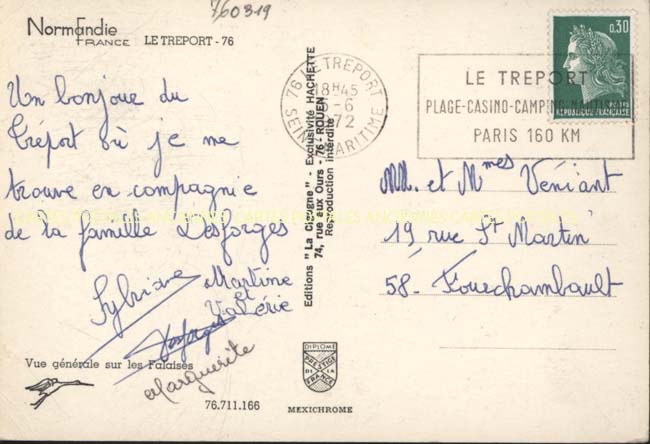 760319
Normandie
FRANCE LE TREPORT - 76
Un bonjour du
Tréport où je me
trouve en compagnie
de la famille Desforges
Sylviane
Martine
et
Valérie
Desforges
Marguerite
Vue générale sur les Falaises
76.711.166
MEXICHROME
Editions "La Cigogne" - Exclusivité HACHETTE
74, rue aux Ours - 76 - ROUEN
Reproduction interdite
DIPLOME
PRESTIGE
DE LA
FRANCE
76 LE TREPORT
18H45
6-6
1972
SEINE MARITIME
LE TREPORT
PLAGE-CASINO-CAMPING-NAUTISME
PARIS 160 KM
0,30
POSTES
REPUBLIQUE FRANÇAISE
MM. et Mmes Veniant
19 rue St Martin
58 - Fourchambault
CARTES POSTALES ANCIENNES